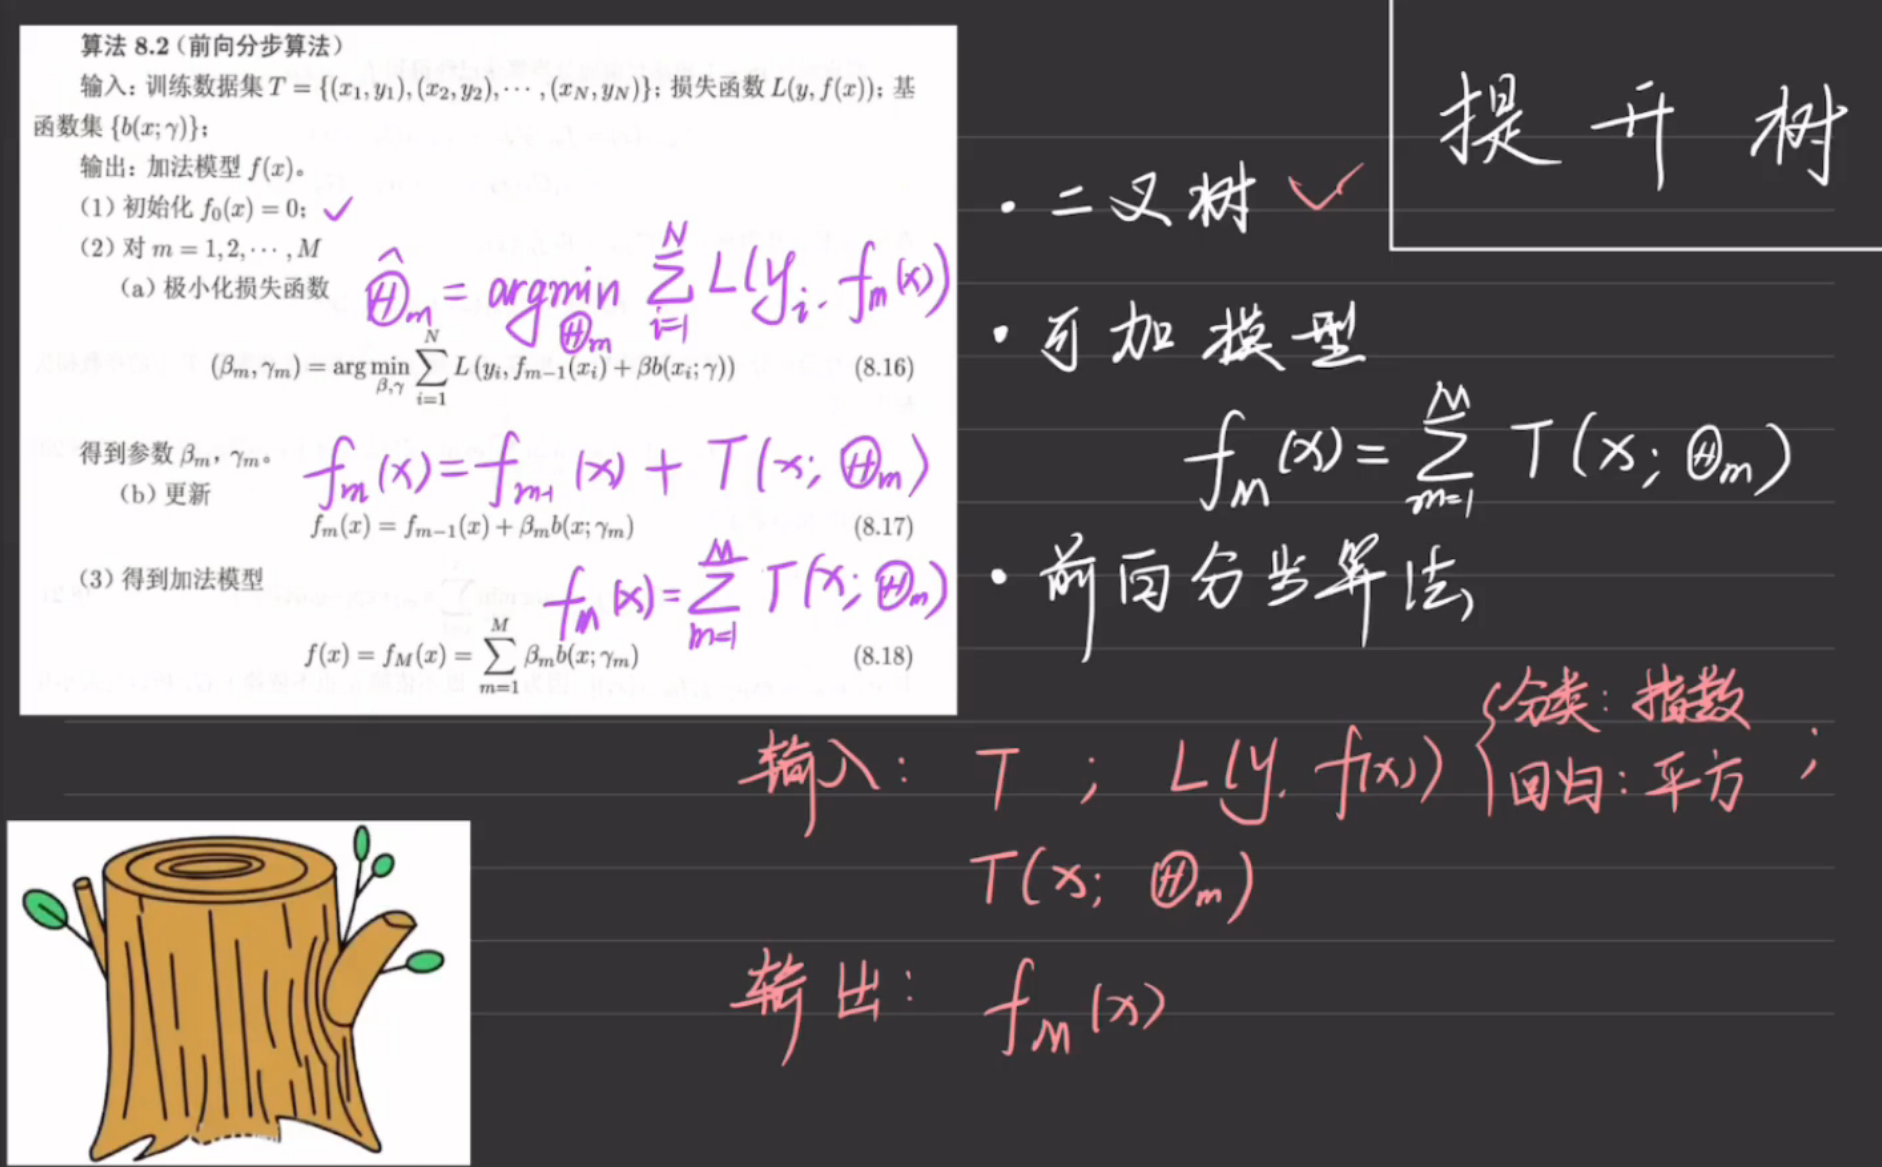 算法 8.2（前向分步算法）
输入：训练数据集 T = {(x₁, y₁), (x₂, y₂), ⋯ , (x_N, y_N)}；损失函数 L(y, f(x))；基
函数集 {b(x; γ)}；
输出：加法模型 f(x)。
（1）初始化 f₀(x) = 0； ✓
（2）对 m = 1, 2, ⋯ , M
（a）极小化损失函数
Θ̂_m = argmin_{Θ_m} ∑_{i=1}^{N} L(y_i, f_m(x))
(β_m, γ_m) = arg min_{β,γ} ∑_{i=1}^{N} L(y_i, f_{m−1}(x_i) + βb(x_i; γ)) (8.16)
得到参数 β_m，γ_m。
f_m(x) = f_{m-1}(x) + T(x; Θ_m)
（b）更新
f_m(x) = f_{m−1}(x) + β_m b(x; γ_m) (8.17)
（3）得到加法模型
f_M(x) = ∑_{m=1}^{M} T(x; Θ_m)
f(x) = f_M(x) = ∑_{m=1}^{M} β_m b(x; γ_m) (8.18)
提升树
· 二叉树 ✓
· 可加模型
f_M(x) = ∑_{m=1}^{M} T(x; Θ_m)
· 前向分步算法
输入： T ； L(y, f(x)) { 分类：指数
回归：平方 ；
T(x; Θ_m)
输出： f_M(x)